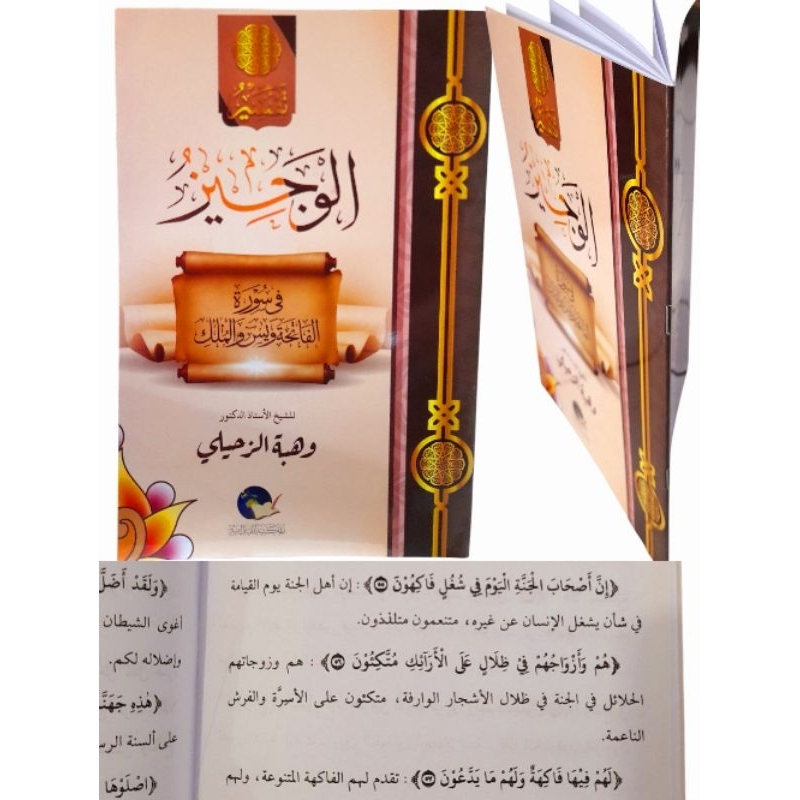 تفسير
الوجيز
في سورة
الفاتحة ويس والملك
للشيخ الأستاذ الدكتور
وهبة الزحيلي
تفسير
الوجيز
﴿إِنَّ أَصْحَابَ الْجَنَّةِ الْيَوْمَ فِي شُغُلٍ فَاكِهُونَ ۝٥٥﴾ : إن أهل الجنة يوم القيامة
في شأن يشغل الإنسان عن غيره، متنعمون متلذذون.
﴿هُمْ وَأَزْوَاجُهُمْ فِي ظِلَالٍ عَلَى الْأَرَائِكِ مُتَّكِئُونَ ۝٥٦﴾ : هم وزوجاتهم
الحلائل في الجنة في ظلال الأشجار الوارفة، متكئون على الأسرَّة والفرش
الناعمة.
﴿لَهُمْ فِيهَا فَاكِهَةٌ وَلَهُم مَا يَدَّعُونَ ۝٥٧﴾ : تقدم لهم الفاكهة المتنوعة، ولهم
﴿وَلَقَدْ أَضَلَّ
أغوى الشيطان
وإضلاله لكم.
﴿هٰذِهِ جَهَنَّ
على ألسنة الرس
﴿اصْلَوْهَا